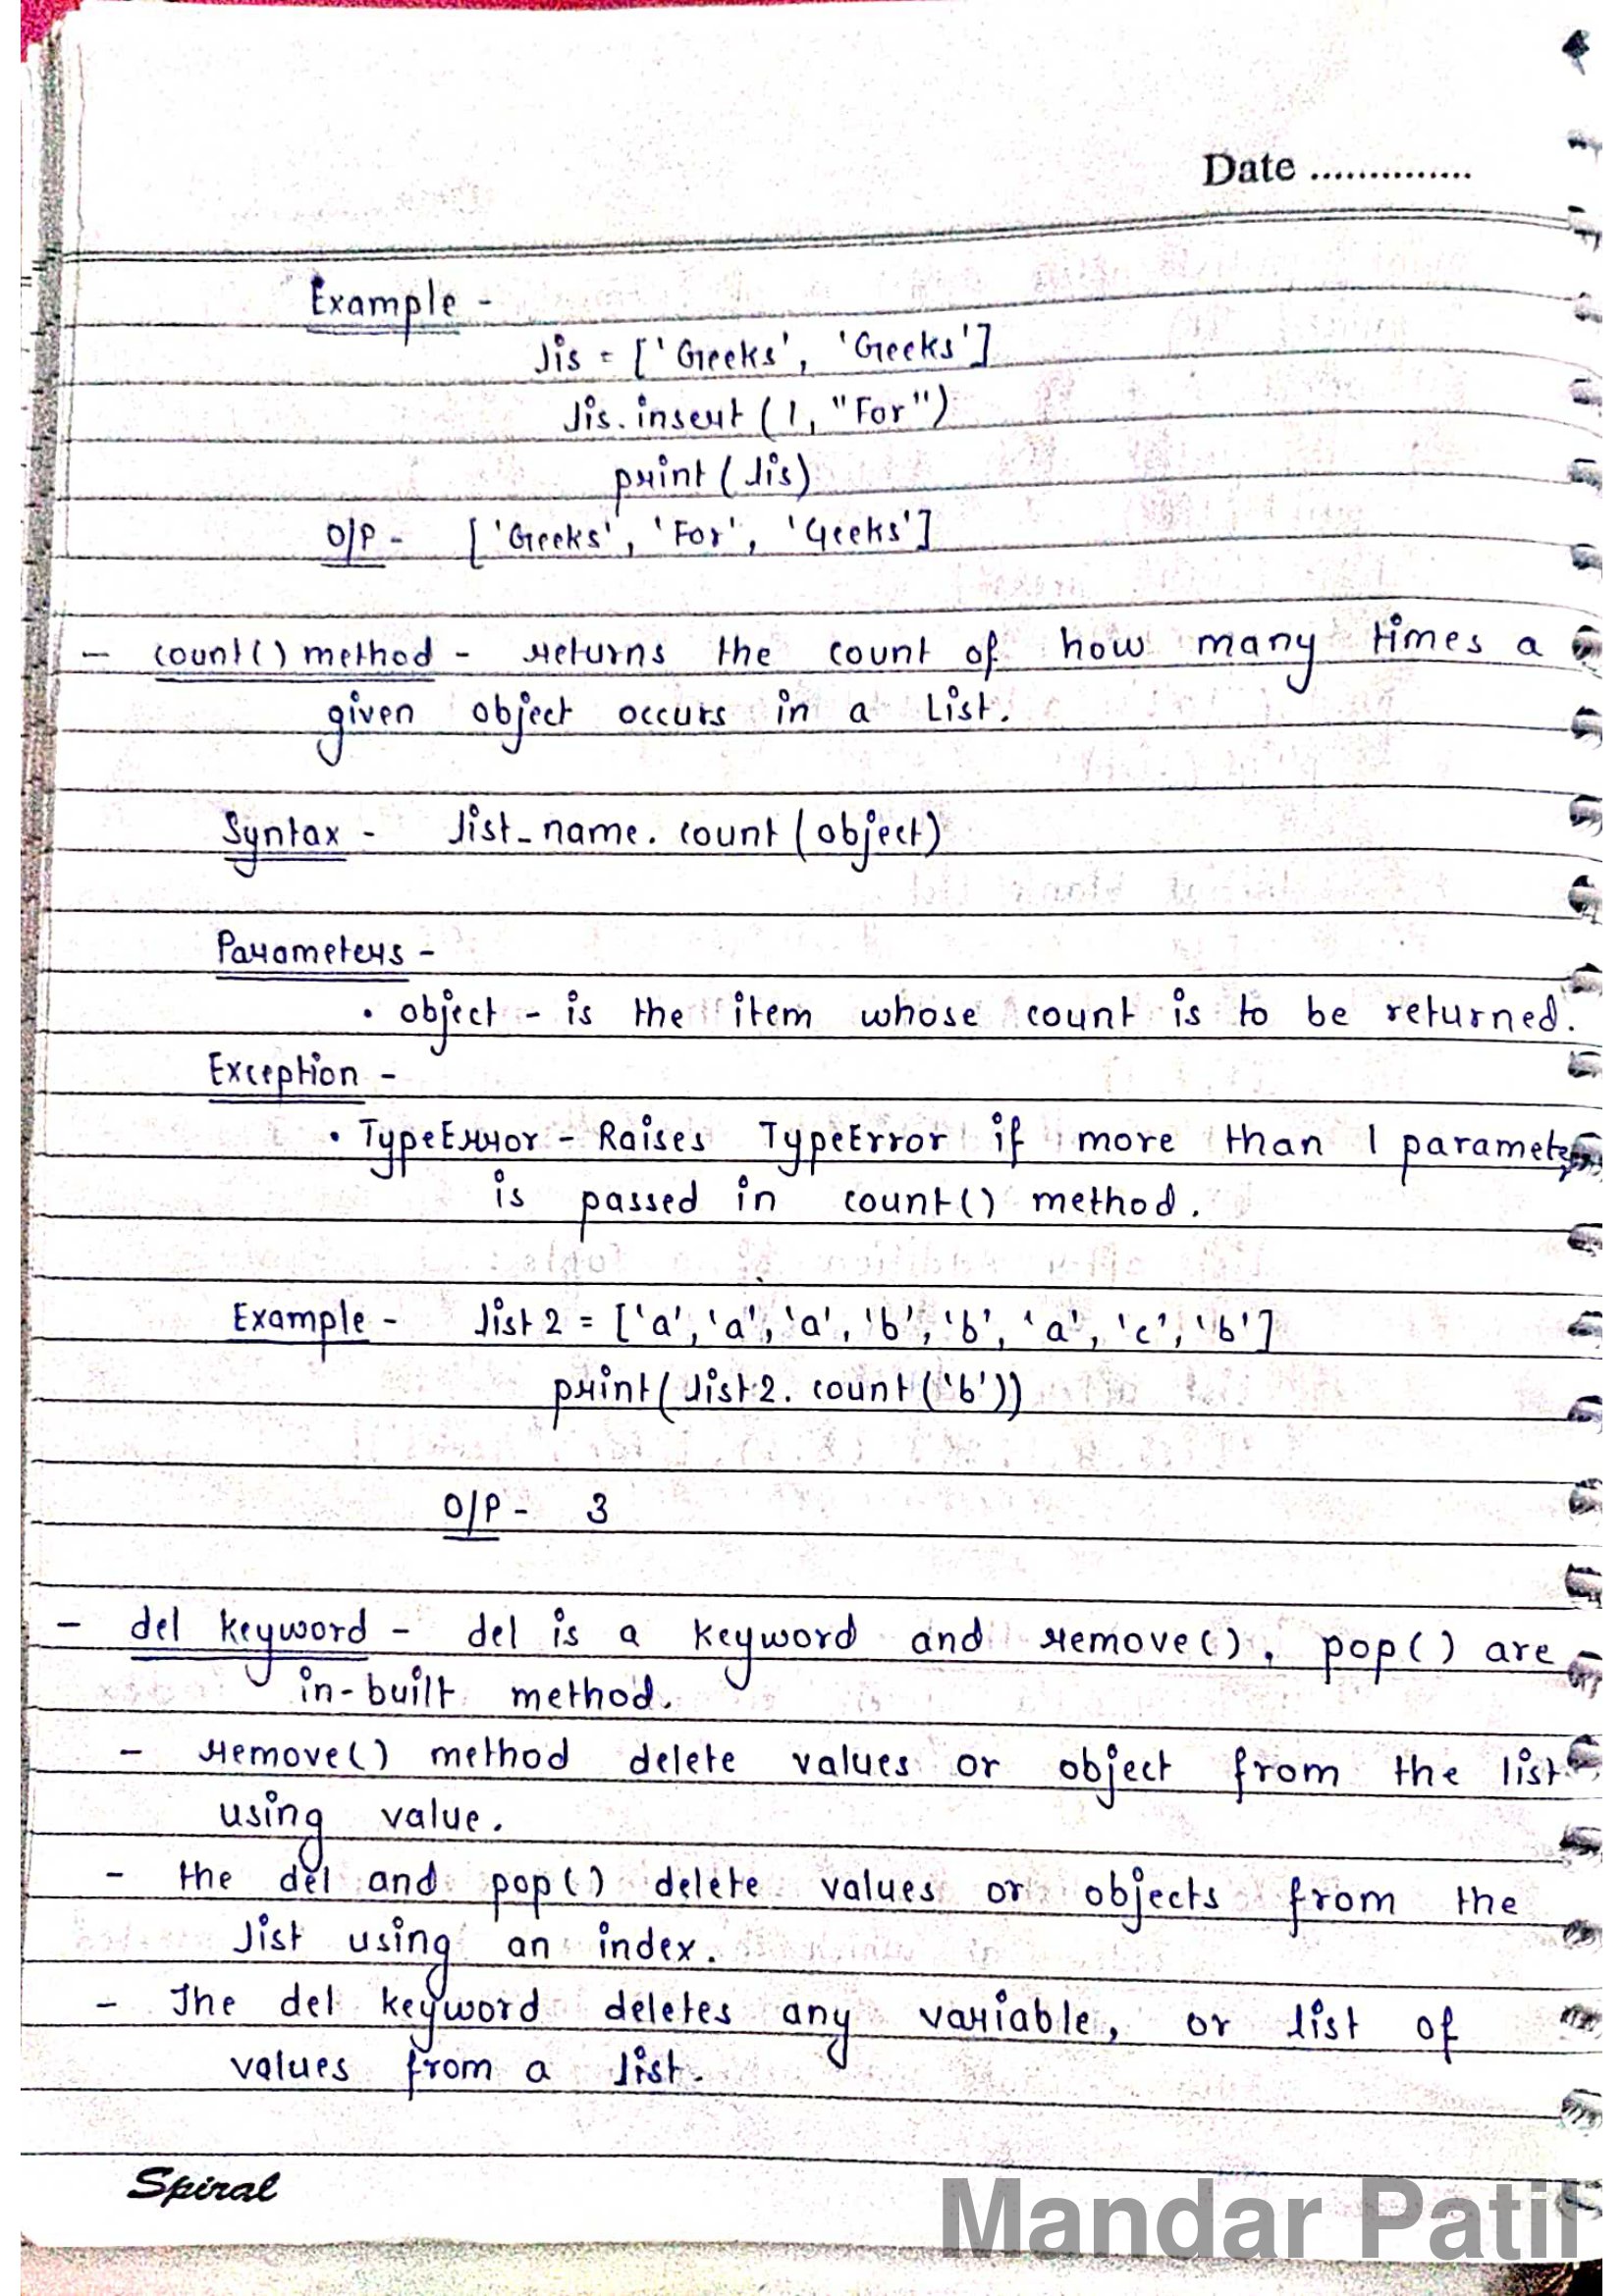 Date ..............
Example -
lis = ['Geeks', 'Geeks']
lis.insert (1, "For")
print (lis)
O/P - ['Geeks', 'For', 'Geeks']
- count() method - returns the count of how many times a
given object occurs in a List.
Syntax - list_name. count (object)
Parameters -
• object - is the item whose count is to be returned.
Exception -
• TypeError - Raises TypeError if more than 1 parameter
is passed in count() method.
Example - list2 = ['a', 'a', 'a', 'b', 'b', 'a', 'c', 'b']
print( list2. count ('b'))
O/P - 3
- del keyword - del is a keyword and remove(), pop() are
in-built method.
- remove() method delete values or object from the list
using value.
- the del and pop() delete values or objects from the
list using an index.
- The del keyword deletes any variable, or list of
values from a list.
Spiral
Mandar Patil